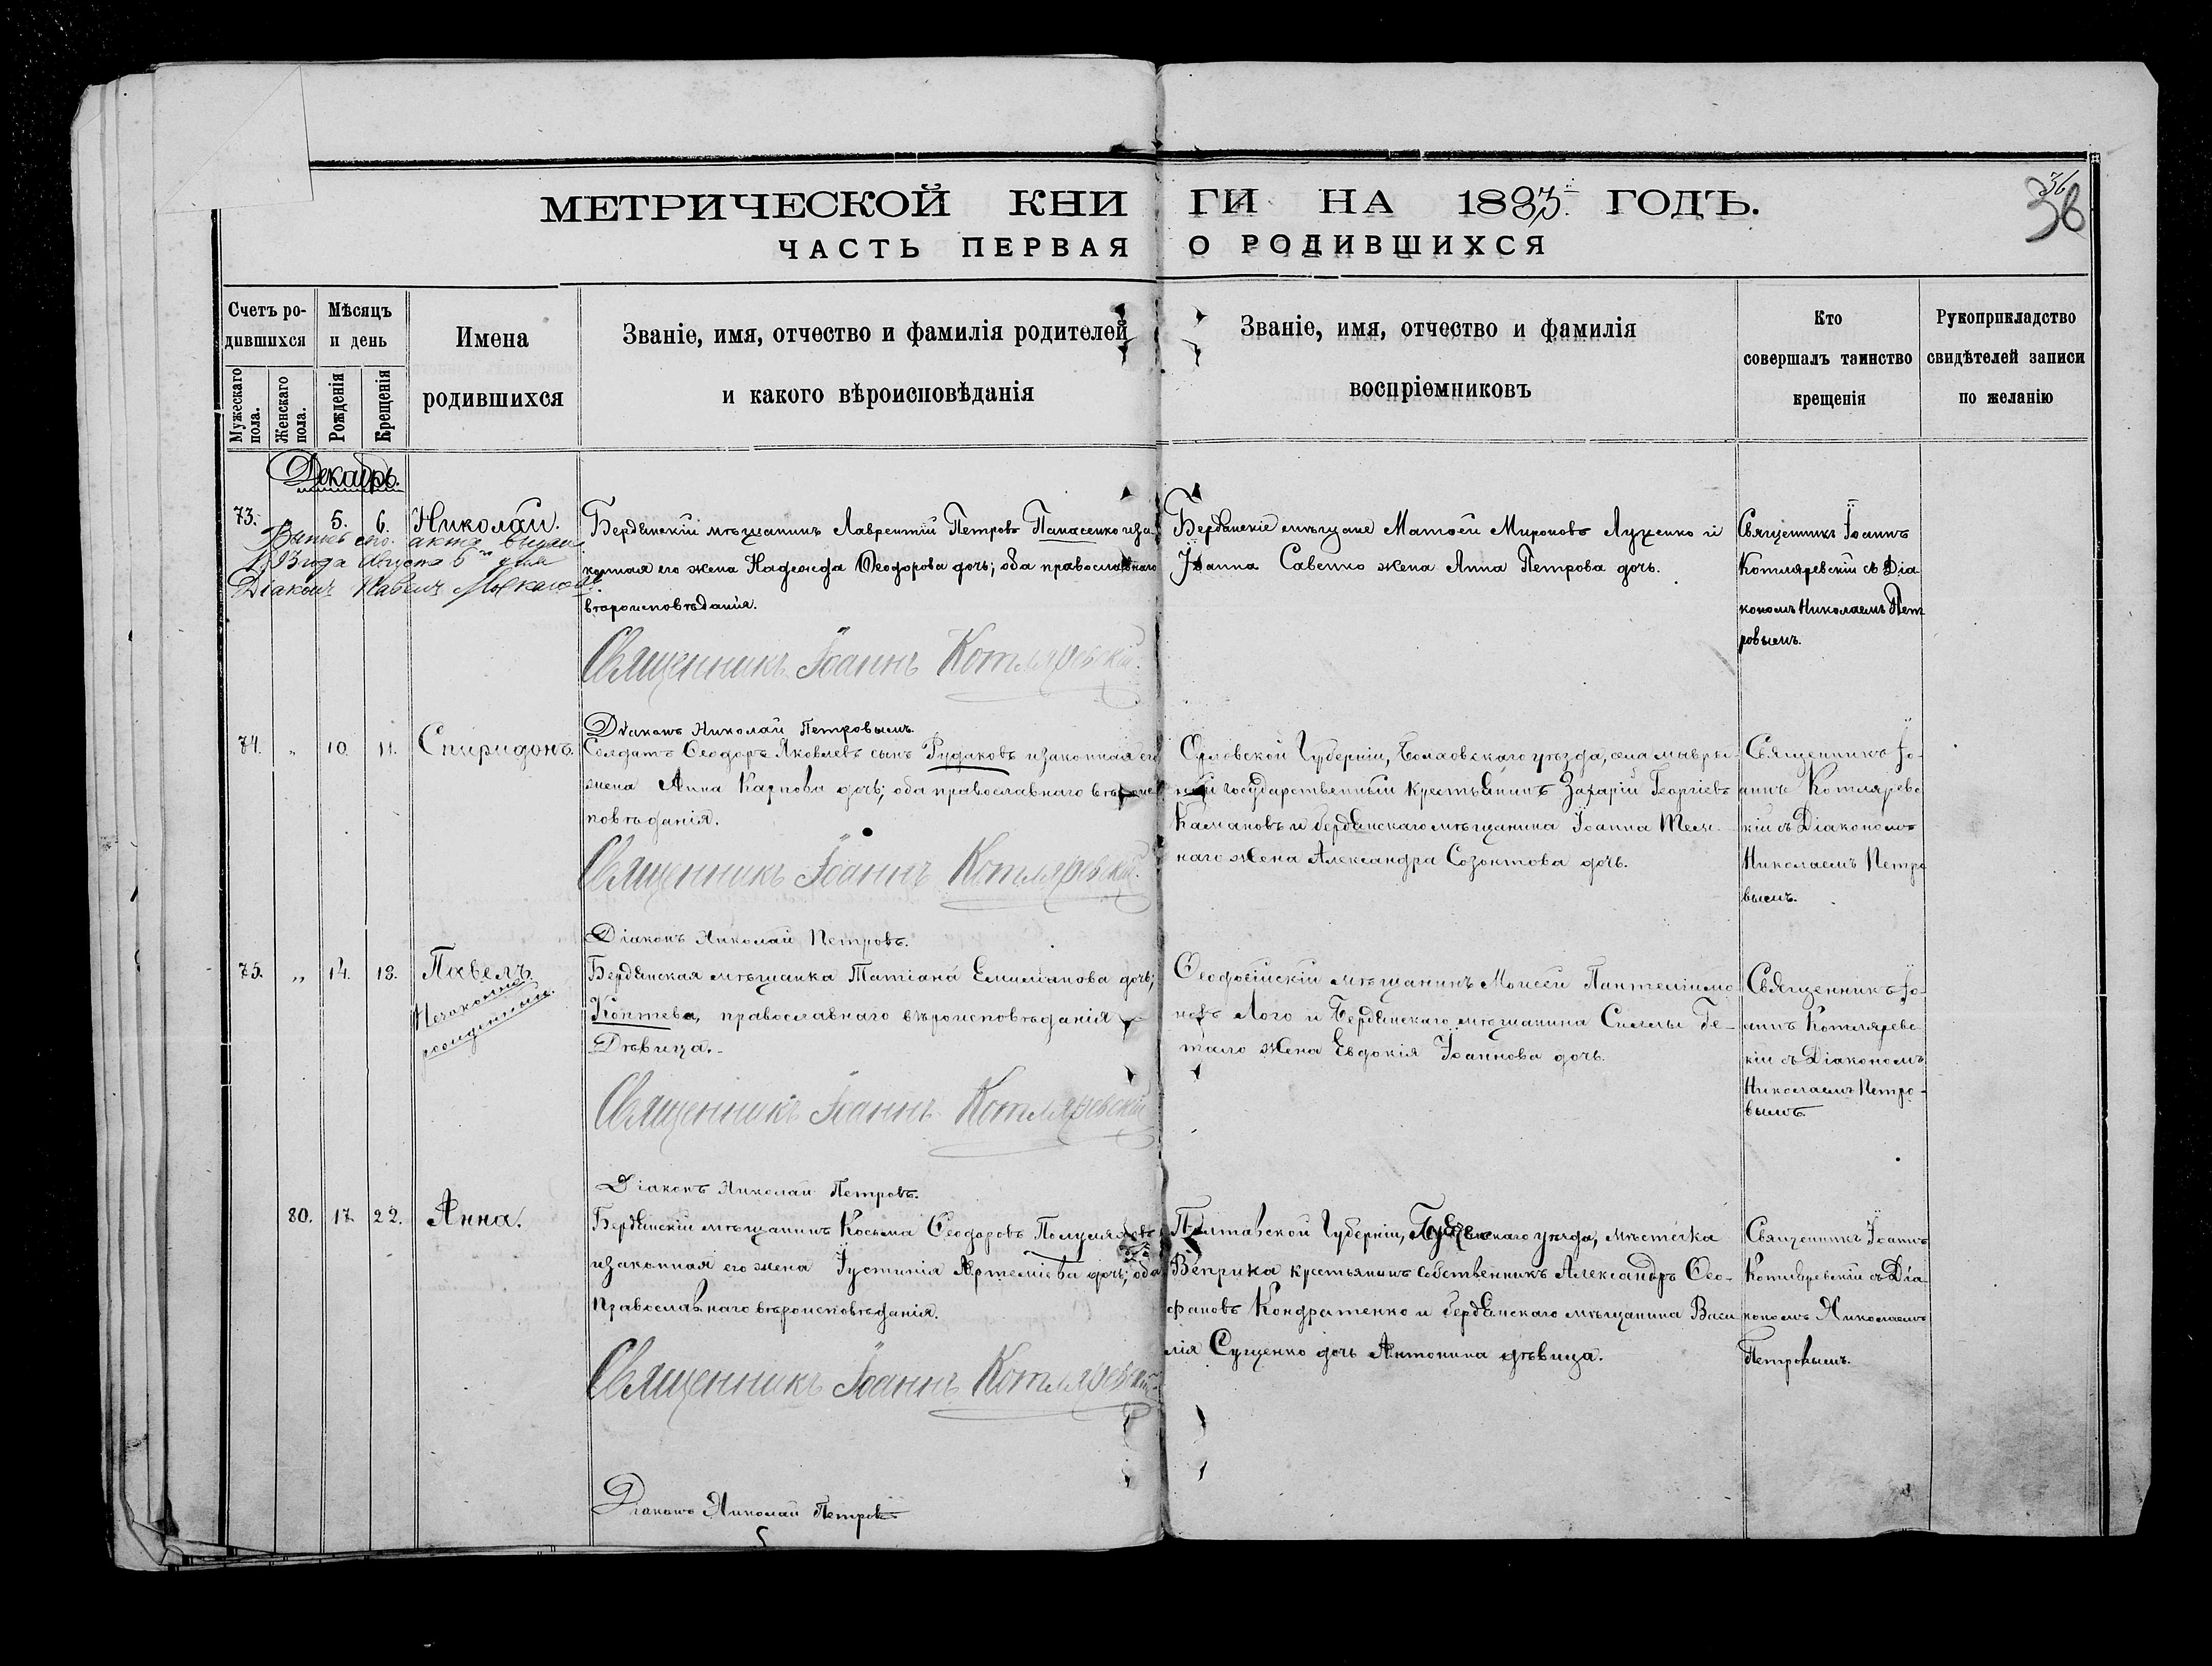 МЕТРИЧЕСКОЙ КНИГИ НА 1883 ГОДЪ.
ЧАСТЬ ПЕРВАЯ О РОДИВШИХСЯ
36
36
Счетъ ро-
дившихся
Мужескаго пола.
Женскаго пола.
Мѣсяцъ
и день
Рожденія
Крещенія
Имена
родившихся
Званіе, имя, отчество и фамилія родителей
и какого вѣроисповѣданія
Званіе, имя, отчество и фамилія
воспріемниковъ
Кто
совершалъ таинство
крещенія
Рукоприкладство
свидѣтелей записи
по желанію
Декабрь.
73. " 5. 6. Николай.
акта выдан
Августа 5 дня
Діаконъ Павелъ
Бердянскій мѣщанинъ Лаврентій Петровъ Панасенко иза-
конная его жена Надежда Ѳеодорова дочь; оба православнаго
вѣроисповѣданія.
Священникъ Іоаннъ Котляревскій.
Діаконъ Николай Петровымъ.
Бердянскіе мѣщане Матѳей Мироновъ Луценко и
Іоанна Савенко жена Анна Петрова дочь.
Священникъ Іоаннъ
Котляревскій съ Діа
кономъ Николаемъ Пет
ровымъ.
74. " 10. 11. Спиридонъ.
Солдатъ Ѳеодоръ Яковлевъ сынъ Рудаковъ изаконная его
жена Анна Карпова дочь; оба православнаго вѣроис
повѣданія.
Священникъ Іоаннъ Котляревскій.
Діаконъ Николай Петровъ.
Орловской Губерніи, уѣзда, села
государственный крестьянинъ Захарій Георгіевъ
Калмановъ и бердянскаго мѣщанина Іоанна Тем-
наго жена Александра Созонтова дочь.
Священникъ Іо-
аннъ Котляревс
кій съ Діакономъ
Николаемъ Петро
вымъ.
75. " 14. 18. Павелъ.
Незаконно
рожденный.
Бердянская мѣщанка Татіана Емиліанова дочь;
Коптева, православнаго вѣроисповѣданія
Дѣвица.
Священникъ Іоаннъ Котляревскій
Діаконъ Николай Петровъ.
Ѳеодосійскій мѣщанинъ Моисей Пантелеимо
новъ Лого и Бердянскаго мѣщанина Силы Ге-
жена Евдокія Іоаннова дочь.
Священникъ Іо-
аннъ Котляревс
кій съ Діакономъ
Николаемъ Петро-
вымъ.
80. 17. 22. Анна.
Бердянскій мѣщанинъ Косьма Ѳеодоровъ
изаконная его жена Іустинія Артеміева дочь; оба
Православнаго вѣроисповѣданія.
Священникъ Іоаннъ Котляревскій.
Діаконъ Николай Петровъ
Полтавской Губерніи, уѣзда, мѣстечка
Веприка крестьянинъ собственникъ Александръ Ѳео-
фановъ Кондратенко и бердянскаго мѣщанина Васи
лія Сущенко дочь Антонина дѣвица.
Священникъ Іоаннъ
Котляревскій съ Діа
кономъ Николаемъ
Петровымъ.